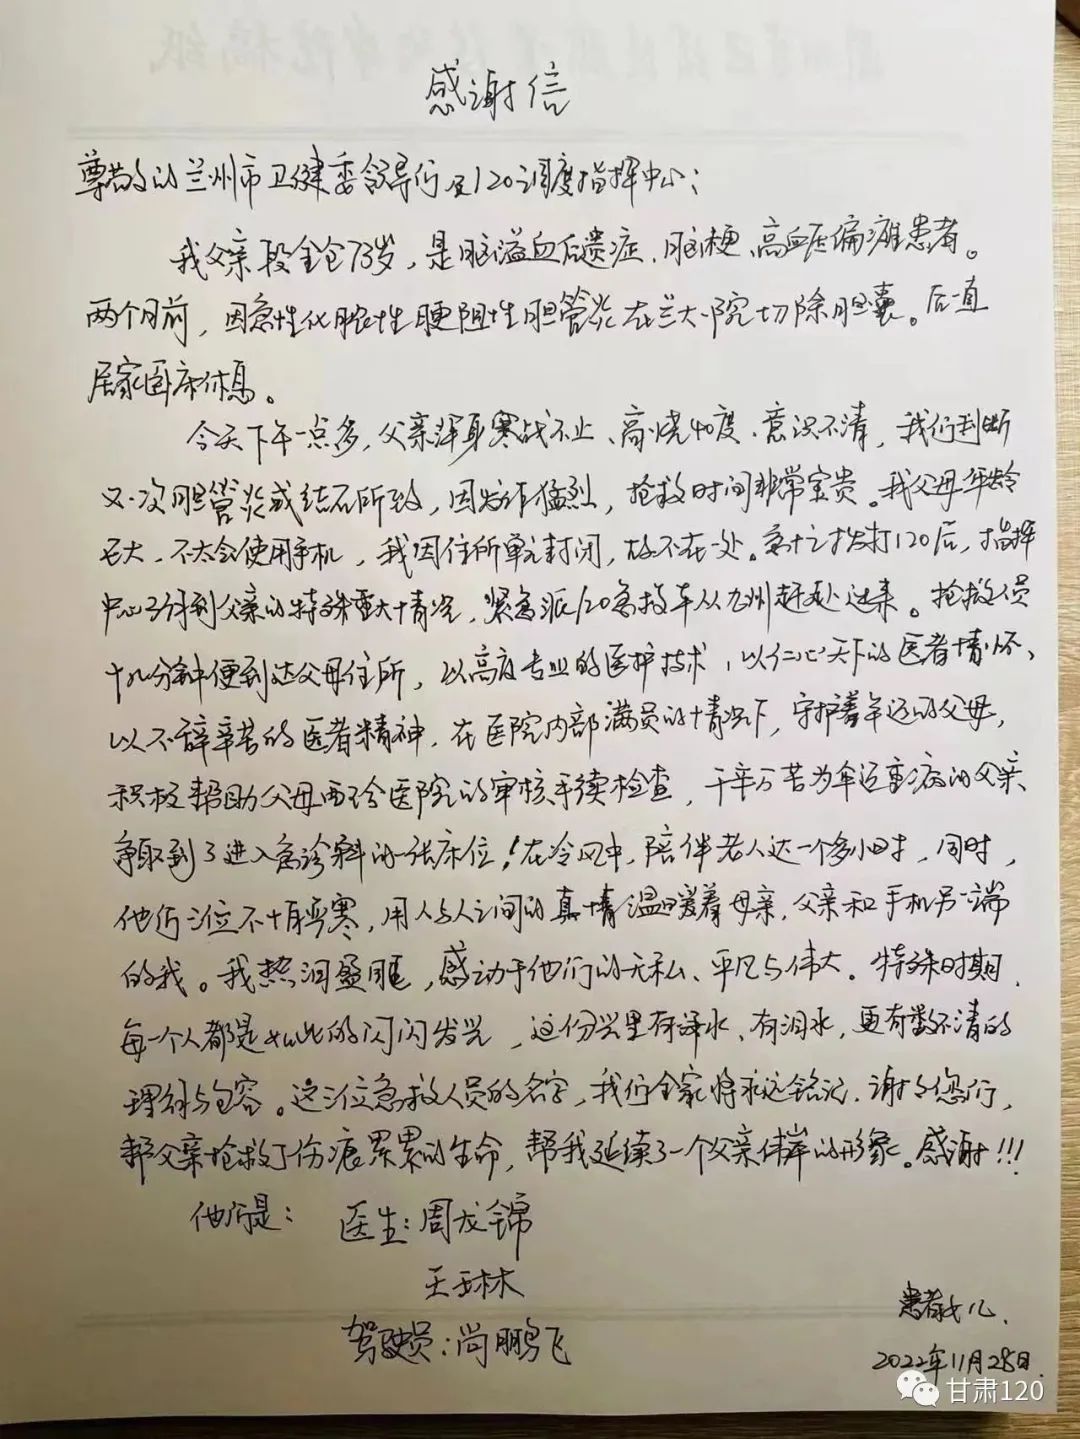 感谢信
尊敬的兰州市卫健委领导们及120调度指挥中心:
我父亲段全仓73岁,是脑溢血后遗症、脑梗、高血压偏瘫患者。
两个月前,因急性化脓性梗阻性胆管炎在兰大一院切除胆囊。后一直
居家卧床休息。
今天下午一点多,父亲浑身寒战不止、高烧40度、意识不清,我们判断
又一次胆管炎或结石所致,因发作猛烈,抢救时间非常宝贵。我父母年龄
已大,不太会使用手机,我因住所单元封闭,故不在一处。急忙之拨打120后,指挥
中心了解到父亲的特殊重大情况,紧急派120急救车从九州赶赴过来。抢救人员
十几分钟便到达父母住所,以高度专业的医护技术,以仁心天下的医者情怀、
以不辞辛苦的医者精神,在医院内部满员的情况下,守护着年迈的父母,
积极帮助父母面诊医院的审核手续检查,千辛万苦为年迈重病的父亲
争取到了进入急诊科的一张床位!在冷风中,陪伴老人达一个多小时,同时,
他们三位不惧严寒,用人与人之间的真情温暖着母亲,父亲和手机另一端
的我。我热泪盈眶,感动于他们的无私、平凡与伟大。特殊时期,
每一个人都是如此的闪闪发光,这份光里有汗水、有泪水,更有数不清的
理解与包容。这三位急救人员的名字,我们全家将永远铭记。谢谢您们,
帮父亲抢救了伤痕累累的生命,帮我延续了一个父亲伟岸的形象。感谢!!!
他们是: 医生:周龙锦
王玉林
驾驶员:尚鹏飞
患者女儿
2022年11月28日
甘肃120